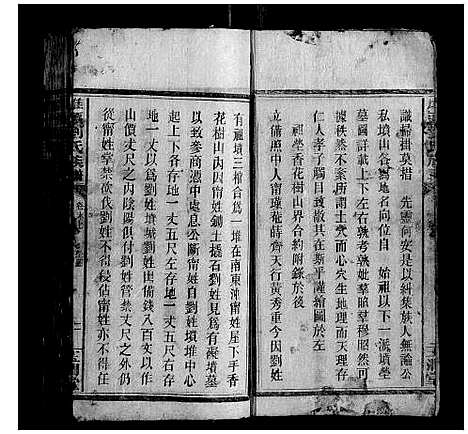 識掃掛莫措 先靈何安是以糾集族人無論公
私墳山各寫地名向位自 始祖以下一派墳塋
墓圖詳載上下左右孰考孰妣羣昭羣穆昭然可
據秩然不紊所謂土穴而心穴生地理而天理存
仁人孝子觸目致慤其在斯乎謹繪圖於左
祖塋香花樹山界合約附錄於後
立備照中人甯瑾菴蔣齊天行黃秀重今因劉姓
有祖墳三棺合爲一堆在南東沖甯姓屋下手香
花樹山內因甯姓鋤土橇石劉姓見爲有礙墳墓
以致參商憑中處息公斷甯姓自劉姓墳堆中心
起上下各存地一丈五尺左存地一丈五尺右存
地一丈以爲劉姓墳塋劉姓出備錢八百文以作
山價丈尺之內陰陽俱付劉姓管業丈尺之外仍
從甯姓掌禁砍伐劉姓不得侵佔甯姓亦不得在
劉氏族譜